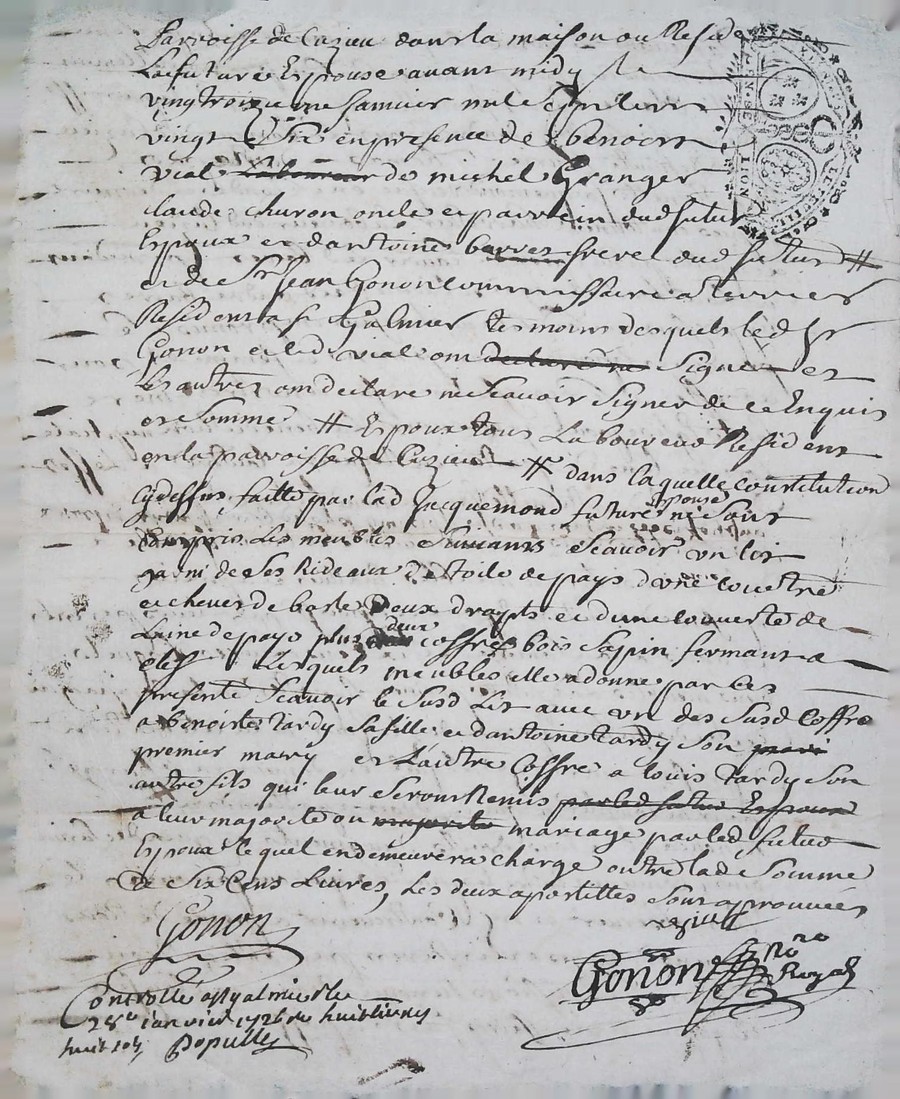 parroisse de Cuzieu dans la maison ou Reside
La future Espouse avant midy le
vingtroizieme Janvier mile Sept Cens
vingt Six en presence de benoist
vial laboureur de michel Granger
claude churon oncle et parrein dud futur
Espoux et dantoine barret frere dud futur #
et de Sr Jean Gonon commissaire a terrier
Resident a St Galmier tesmoins desquels led Sr
Gonon et led vial ont declare ne Signe et
Les autres ont declare ne Scavoir Signer de ce Enquis
et Somme # Espoux tous Laboureurs Resident
en la parroisse de Cuzieu # dans laquelle constitution
cydessus faitte par lad Jacquemond future espouse ne Sont
Compris Les meubles Suivants Scavoir un lit
garni de Ses Rideaux de toile de pays dune couettre
et chevet de basle Deux drapts et dune couverte de
Laine de pays plus deux coffres bois Sapin fermant a
clef Lesquels meubles elle a donne par ces
presente Scavoir le Susd Lit avec un des Susd Coffre
a benoiste tardy Sa fille et dantoine tardy Son mari
premier mary et Lautre Coffre a louis tardy Son
autre fils qui leur Seront Remis par led futur Espoux
a leur majorite ou majorite mariage par led futur
Espoux lequel en demeurera charge outre lad Somme
de Six Cens Livres, Les deux apostilles Sont approuvees
Gonon
Gonon Nore Royal
Controllé a St galmier le
28e janvier 1726 R huit livres
huit sols Populle